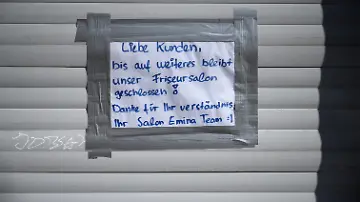 Liebe Kunden,
bis auf weiteres bleibt
unser Friseursalon
geschlossen!
Danke für Ihr verständnis,
Ihr Salon Emina Team :)